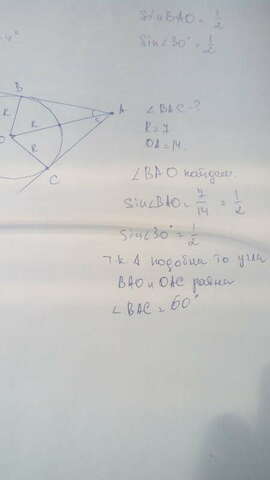 Sin BAO = 1/2
Sin∠30° = 1/2
B
R
A
R
R
C
∠BAC - ?
R = 7
OA = 14.
∠BAO найдем.
Sin∠BAO = 7/14 = 1/2
Sin∠30° = 1/2
т.к. Δ подобны то углы
BAO и OAC равны
∠BAC = 60°